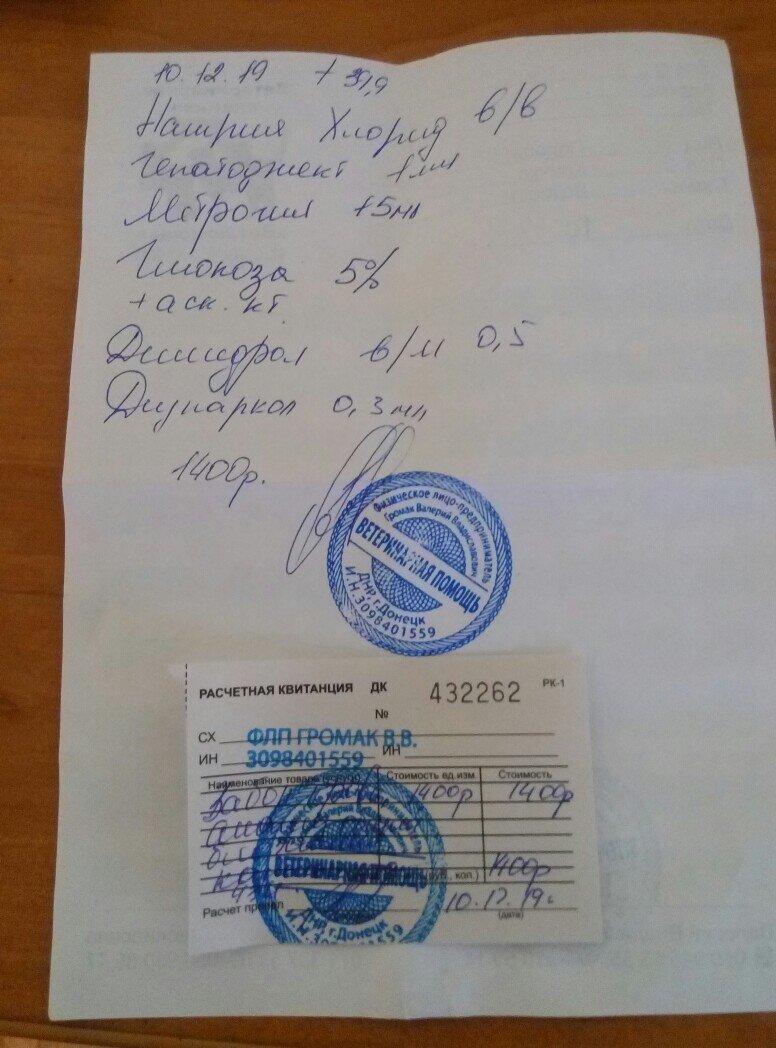 10.12.19 + 39,9
Натрия Хлорид в/в
Гепатоджект 1 мл
Метрогил 15 мл
Глюкоза 5%
+ аск. кт
Димедрол в/м 0,5
Дипаркол 0,3 мл
1400р.
Физическое лицо-предприниматель
Громак Валерий Владиславович
ВЕТЕРИНАРНАЯ ПОМОЩЬ
ДНР, г.Донецк
И.Н.3098401559
РАСЧЕТНАЯ КВИТАНЦИЯ ДК 432262 РК-1
№
СХ ФЛП ГРОМАК В.В.
ИН 3098401559 ИН
Наименование товара Стоимость ед изм. Стоимость
1400р 1400р
ВЕТЕРИНАРНАЯ ПОМОЩЬ
руб., коп.) 1400р
Расчет провел 10.12.19г.
(дата)
ДНР, г.Донецк
И.Н.3098401559